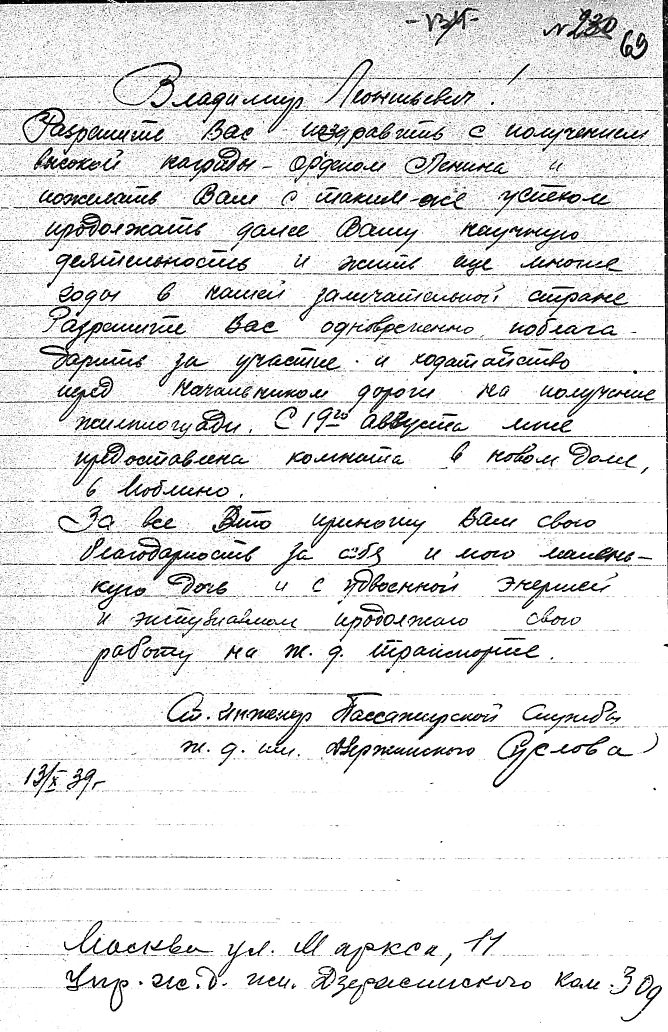 № 230
69
Владимир Леонтьевич!
Разрешите Вас поздравить с получением
высокой награды – Орденом Ленина и
пожелать Вам с таким-же успехом
продолжать далее Вашу научную
деятельность и жить еще многие
годы в нашей замечательной стране
Разрешите Вас одновременно поблага-
дарить за участие и ходатайство
перед Начальником дороги на получение
жилплощади. С 19го Августа мне
предоставлена комната в новом Доме,
в Люблино.
За все это приношу Вам свою
благодарность за себя и мою малень-
кую Дочь и с удвоенной энергией
и энтузиазмом продолжаю свою
работу на ж. д. транспорте.
Ст. инженер Пассажирской Службы
ж. д. им. Дзержинского Суслова
13/X 39г
Москва ул. Маркса, 11
Упр. ж. д. им. Дзержинского ком. 309